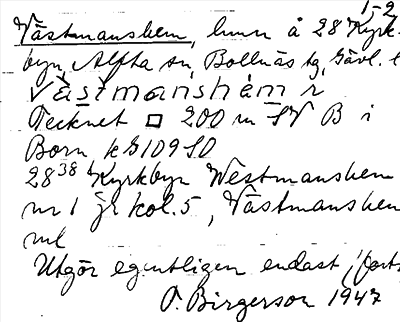 1-2
Västmanshem, hmn å 28 Kyrk-
byn, Alfta sn, Bollnäs tg, Gävl. l
västmanshèm r
Tecknet □ 200 m SV B i
Born k G109 SO
28³⁸ Kyrkbyn Westmanshem
nr 1 jr kol. 5, Västmanshem
ml
Utgör egentligen endast (forts
O. Birgerson 1947